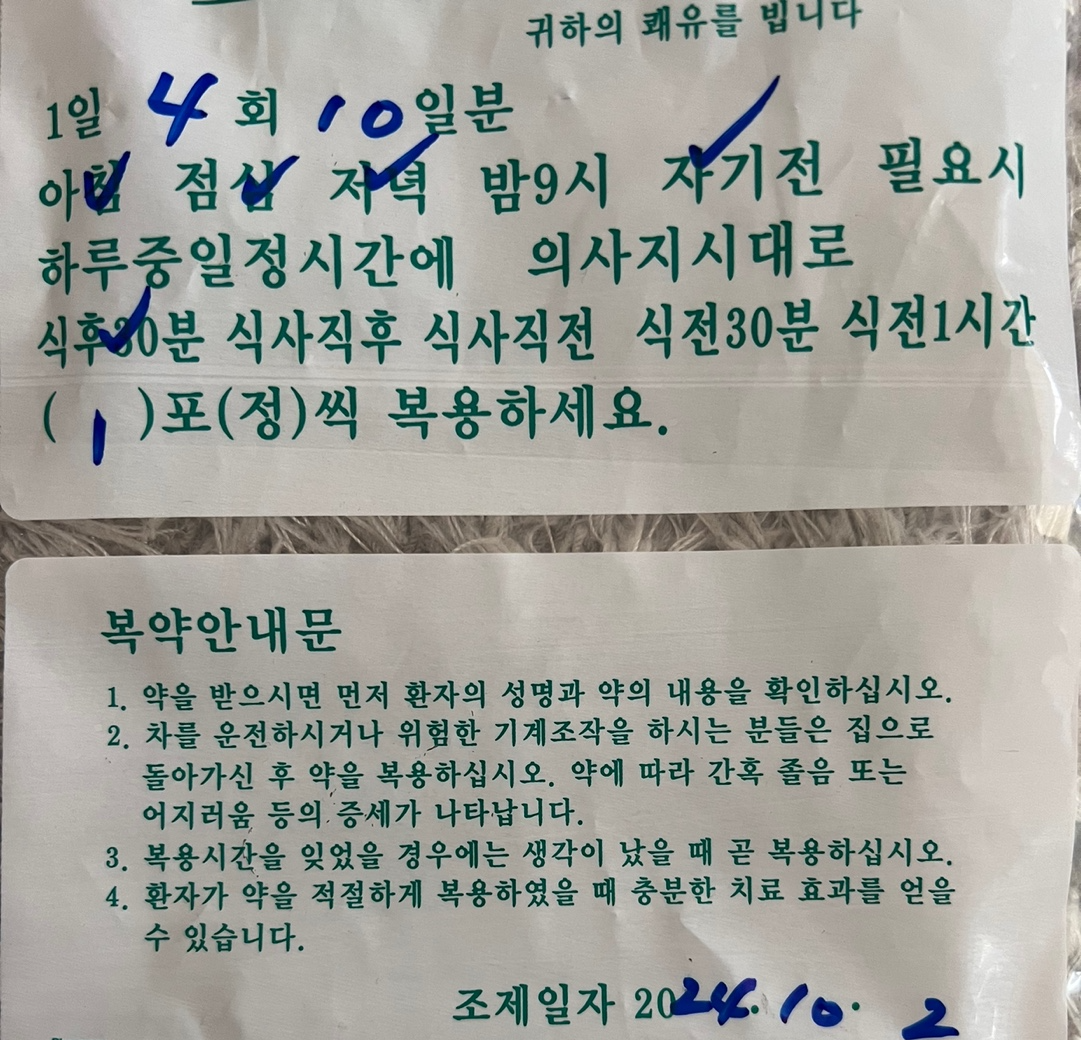 귀하의 쾌유를 빕니다
1일 4 회 10일분
아침 점심 저녁 밤9시 자기전 필요시
하루중일정시간에 의사지시대로
식후30분 식사직후 식사직전 식전30분 식전1시간
( 1 )포(정)씩 복용하세요.
복약안내문
1. 약을 받으시면 먼저 환자의 성명과 약의 내용을 확인하십시오.
2. 차를 운전하시거나 위험한 기계조작을 하시는 분들은 집으로
돌아가신 후 약을 복용하십시오. 약에 따라 간혹 졸음 또는
어지러움 등의 증세가 나타납니다.
3. 복용시간을 잊었을 경우에는 생각이 났을 때 곧 복용하십시오.
4. 환자가 약을 적절하게 복용하였을 때 충분한 치료 효과를 얻을
수 있습니다.
조제일자 2024. 10. 2